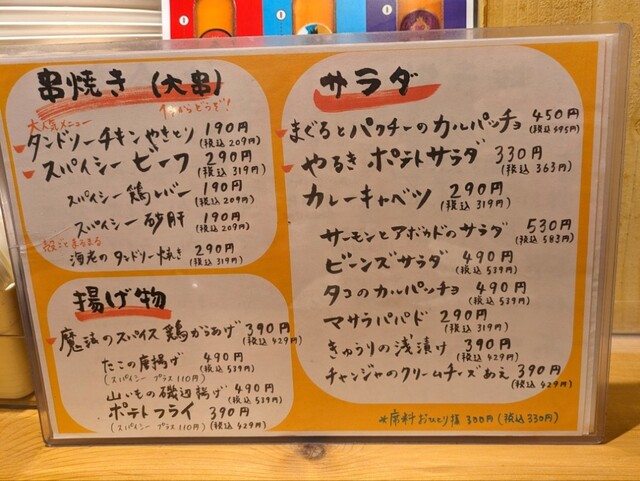 串焼き (大串)
1本からどうぞ!
大人気メニュー
タンドリーチキンやきとり 190円
(税込209円)
スパイシービーフ 290円
(税込319円)
スパイシー鶏レバー 190円
(税込209円)
スパイシー砂肝 190円
(税込209円)
殻ごとまるまる
海老のタンドリー焼き 290円
(税込319円)
揚げ物
魔法のスパイス鶏からあげ 390円
(税込429円)
たこの唐揚げ 490円
(スパイシー プラス110円) (税込539円)
山いもの磯辺揚げ 490円
(税込539円)
ポテトフライ 390円
(スパイシー プラス110円) (税込429円)
サラダ
まぐろとパクチーのカルパッチョ 450円
(税込495円)
やるき ポテトサラダ 330円
(税込363円)
カレーキャベツ 290円
(税込319円)
サーモンとアボカドのサラダ 530円
(税込583円)
ビーンズサラダ 490円
(税込539円)
タコのカルパッチョ 490円
(税込539円)
マサラパパド 290円
(税込319円)
きゅうりの浅漬け 390円
(税込429円)
チャンジャのクリームチーズあえ 390円
(税込429円)
*席料おひとり様 300円(税込330円)